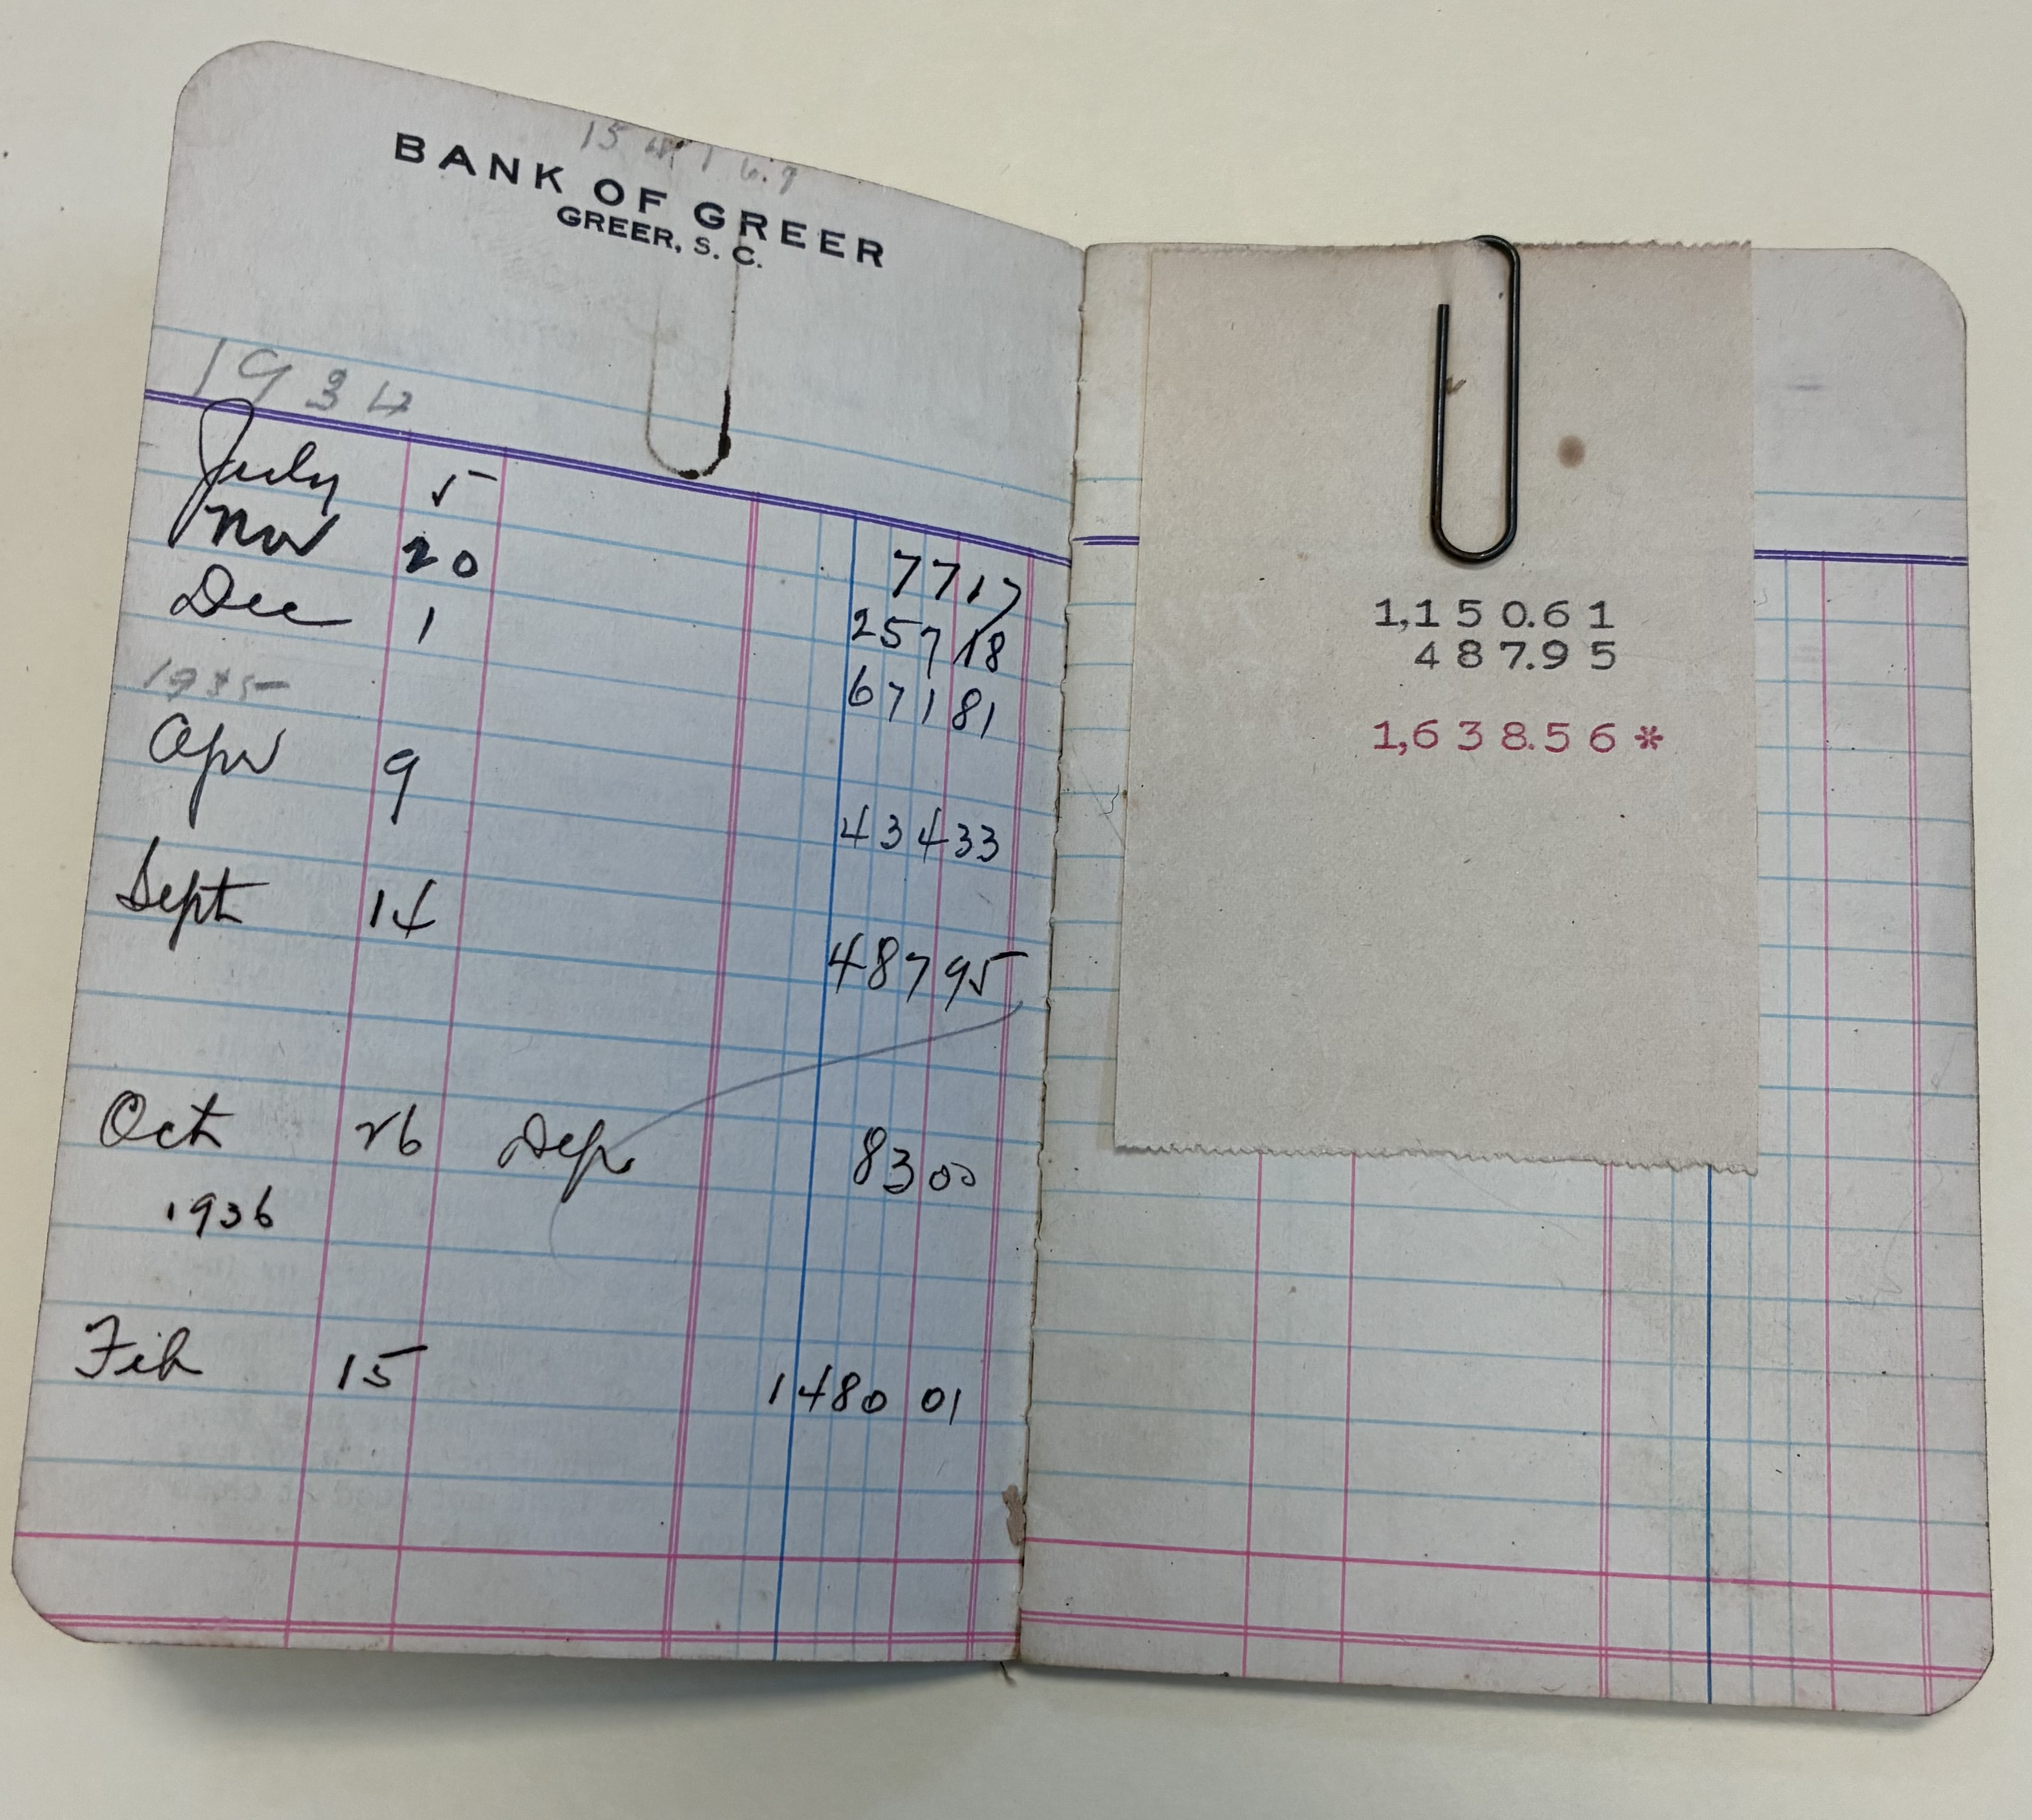 BANK OF GREER
GREER, S. C.
1934
July 5 77 17
Nov 20 257 18
Dec 1 671 81
1935
Apr 9 434 33
Sept 14 487 95
Oct 26 Dep 83 00
1936
Feb 15 1480 01
1,150.61
487.95
1,638.56*